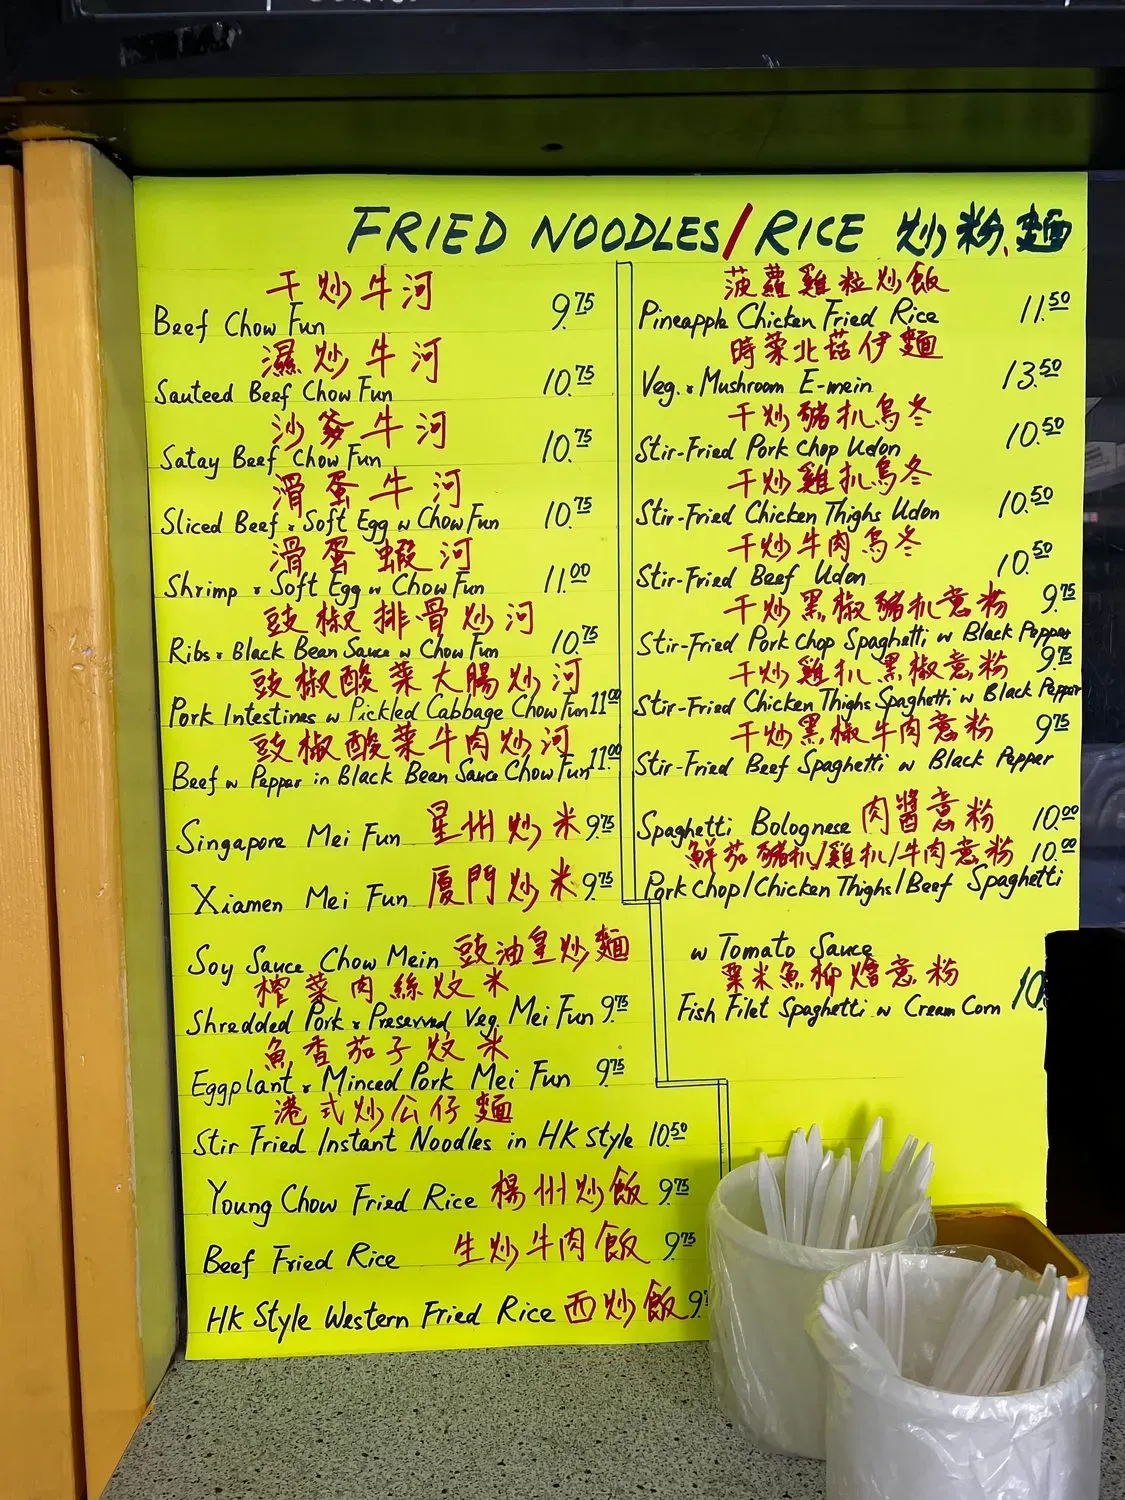 FRIED NOODLES/RICE 炒粉、麵
干炒牛河
Beef Chow Fun 9.75
濕炒牛河
Sauteed Beef Chow Fun 10.75
沙爹牛河
Satay Beef Chow Fun 10.75
滑蛋牛河
Sliced Beef & Soft Egg w Chow Fun 10.75
滑蛋蝦河
Shrimp & Soft Egg w Chow Fun 11.00
豉椒排骨炒河
Ribs & Black Bean Sauce w Chow Fun 10.75
豉椒酸菜大腸炒河
Pork Intestines w Pickled Cabbage Chow Fun 11.00
豉椒酸菜牛肉炒河
Beef w Pepper in Black Bean Sauce Chow Fun 11.00
Singapore Mei Fun 星州炒米 9.75
Xiamen Mei Fun 廈門炒米 9.75
Soy Sauce Chow Mein 豉油皇炒麵
榨菜肉絲炆米
Shredded Pork & Preserved Veg. Mei Fun 9.75
魚香茄子炆米
Eggplant & Minced Pork Mei Fun 9.75
港式炒公仔麵
Stir Fried Instant Noodles in HK Style 10.50
Young Chow Fried Rice 楊州炒飯 9.75
Beef Fried Rice 生炒牛肉飯 9.75
HK Style Western Fried Rice 西炒飯
菠蘿雞粒炒飯
Pineapple Chicken Fried Rice 11.50
時菜北菇伊麵
Veg. & Mushroom E-mein 13.50
干炒豬扒烏冬
Stir-Fried Pork Chop Udon 10.50
干炒雞扒烏冬
Stir-Fried Chicken Thighs Udon 10.50
干炒牛肉烏冬
Stir-Fried Beef Udon 10.50
干炒黑椒豬扒意粉 9.75
Stir-Fried Pork Chop Spaghetti w Black Pepper
干炒雞扒黑椒意粉 9.75
Stir-Fried Chicken Thighs Spaghetti w Black Pepper
干炒黑椒牛肉意粉 9.75
Stir-Fried Beef Spaghetti w Black Pepper
Spaghetti Bolognese 肉醬意粉 10.00
鮮茄豬扒/雞扒/牛肉意粉 10.00
Pork Chop/Chicken Thighs/Beef Spaghetti
w Tomato Sauce
粟米魚柳燴意粉
Fish Filet Spaghetti w Cream Corn